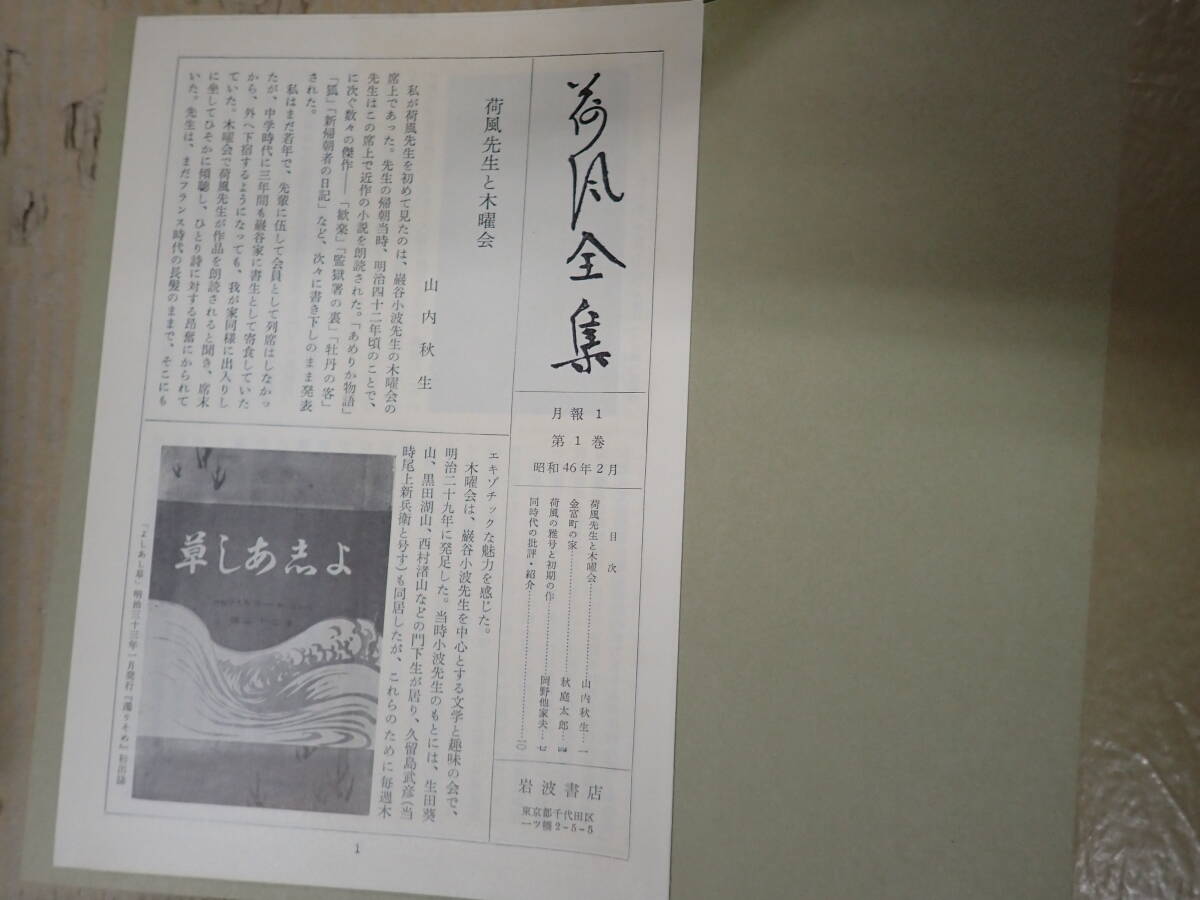 荷風全集
月報 1
第 1 巻
昭和46年2月
目次
荷風先生と木曜会……………山内秋生…一
金冨町の家……………秋庭太郎…四
荷風の雅号と初期の作……………岡野他家夫…七
同時代の批評・紹介……………一〇
岩波書店
東京都千代田区
一ツ橋2-5-5
荷風先生と木曜会
山内秋生
私が荷風先生を初めて見たのは、巌谷小波先生の木曜会の
席上であった。先生の帰朝当時、明治四十二年頃のことで、
先生はこの席上で近作の小説を朗読された。「あめりか物語」
に次ぐ数々の傑作――「歓楽」「監獄署の裏」「牡丹の客」
「狐」「新帰朝者の日記」など、次々に書き下しのまま発表
された。
私はまだ若年で、先輩に伍して会員として列席はしなかっ
たが、中学時代に三年間も巌谷家に書生として寄食していた
から、外へ下宿するようになっても、我が家同様に出入りし
ていた。木曜会で荷風先生が作品を朗読されると聞き、席末
に坐してひそかに傾聴し、ひとり詩に対する昂奮にかられて
いた。先生は、まだフランス時代の長髪のままで、そこにも
エキゾチックな魅力を感じた。
木曜会は、巌谷小波先生を中心とする文学と趣味の会で、
明治二十九年に発足した。当時小波先生のもとには、生田葵
山、黒田湖山、西村渚山などの門下生が居り、久留島武彦（当
時尾上新兵衛と号す）も同居したが、これらのために毎週木
よしあし草
「よしあし草」明治三十三年一月発行『濁りそめ』初出誌
1